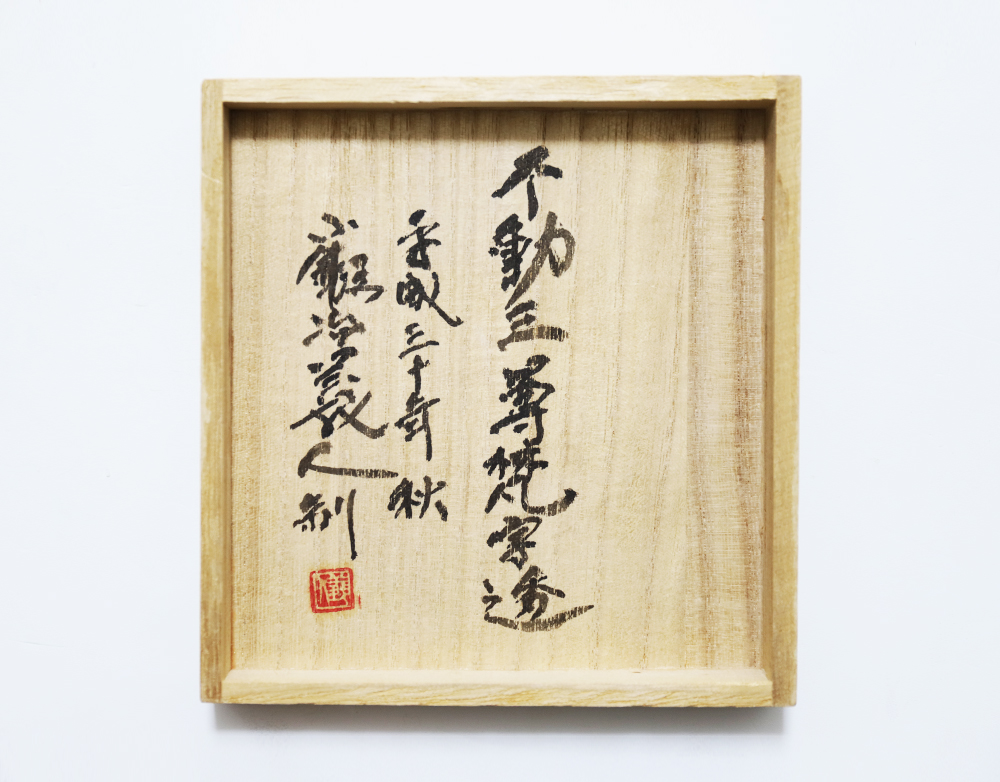 不動三尊梵字透
平成三十年 秋
小鍛冶義人制